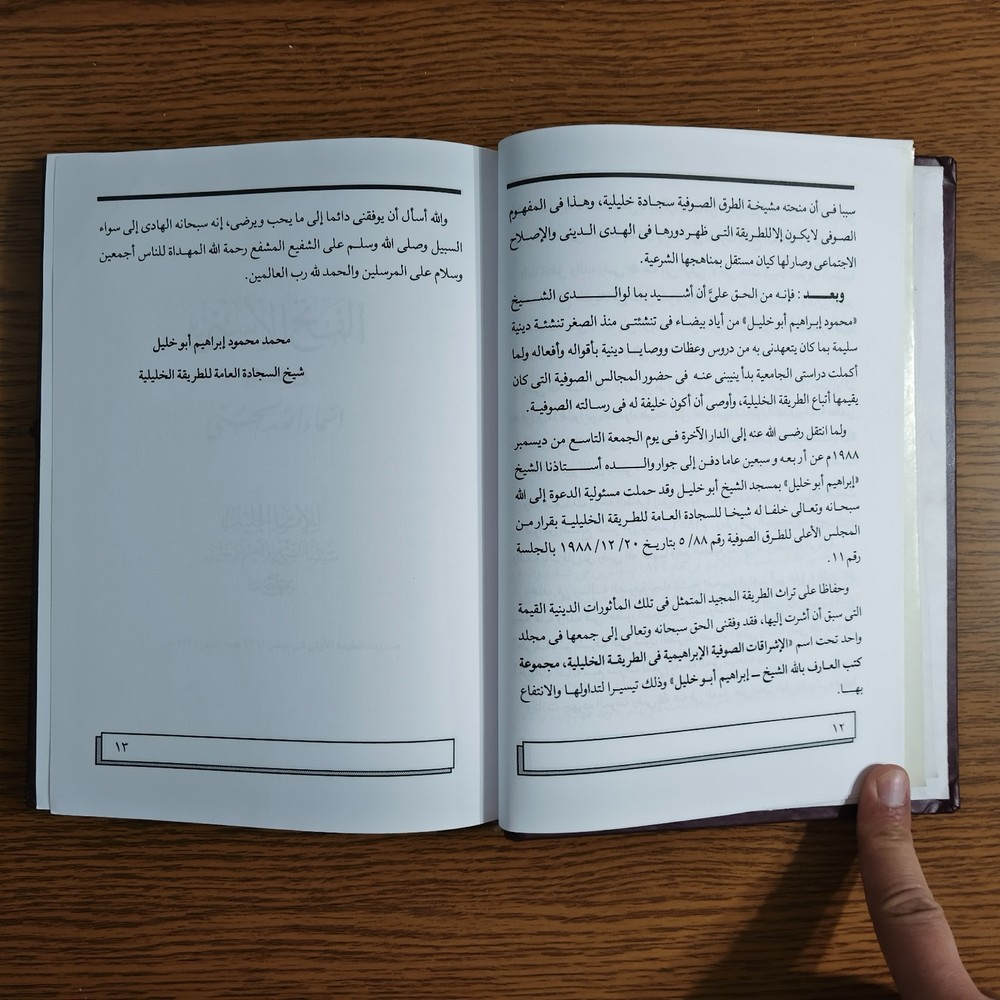 سببا فى أن منحته مشيخة الطرق الصوفية سجادة خليلية، وهذا فى المفهوم
الصوفى لا يكون إلا للطريقة التى ظهر دورها فى الهدى الدينى والإصلاح
الاجتماعى وصار لها كيان مستقل بمناهجها الشرعية.
وبعـــد : فإنه من الحق علىَّ أن أشـــيد بما لوالـــــدى الشـــيخ
«محمود إبراهيم أبو خليل» من أياد بيضاء فى تنشئتى منذ الصغر تنشئة دينية
سليمة بما كان يتعهدنى به من دروس وعظات ووصايـــا دينية بأقواله وأفعاله ولما
أكملت دراستى الجامعية بدأ ينيبنى عنـه فى حضور المجالس الصوفية التى كان
يقيمها أتباع الطريقة الخليلية، وأوصى أن أكون خليفة له فى رسالته الصوفية.
ولما انتقل رضى الله عنه إلى الدار الآخرة فى يوم الجمعة التاسع من ديسمبر
١٩٨٨م عن أربعه وسبعين عاما دفن إلى جوار والـــــده أســـتاذنا الشيخ
«إبراهيم أبو خليل» بمسجد الشيخ أبو خليـل وقد حملت مسئولية الدعوة إلى الله
سبحانه وتعالى خلفا له شيخـا للسجادة العامة للطريقة الخليليـة بقرار من
المجلس الأعلى للطرق الصوفية رقم ٥/٨٨ بتاريـخ ٢٠ /١٢ /١٩٨٨ بالجلسة
رقم ١١.
وحفاظا على تراث الطريقة المجيد المتمثل فى تلك المأثورات الدينية القيمة
التى سبق أن أشرت إليها، فقد وفقنى الحق سبحانه وتعالى إلى جمعها فى مجلد
واحد تحت اسم «الإشراقات الصوفية الإبراهيمية فى الطريقـة الخليلية، مجموعة
كتب العارف بالله الشيخ ــ إبراهيم أبـو خليل» وذلك تيسيـرا لتداولهـا والانتفاع
بهـــا.
١٢
والله أسأل أن يوفقنى دائما إلى ما يحب ويرضى، إنه سبحانه الهادى إلى سواء
السبيل وصلى الله وسلـم على الشفيع المشفع رحمة الله المهـداة للناس أجمعين
وسلام على المرسلين والحمد لله رب العالمين.
محمد محمود إبراهيم أبو خليل
شيخ السجادة العامة للطريقة الخليلية
١٣